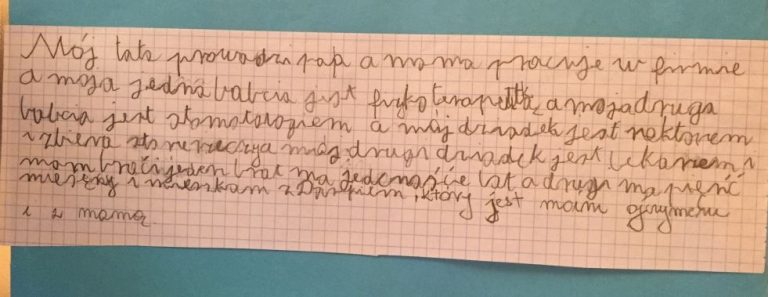 Mój tata prowadzi pap a mama pracuje w firmie
a moja jedna babcia jest fizykoterapeutką a moja druga
babcia jest stomatologiem a mój dziadek jest rektorem
i zbiera mój drugi dziadek jest lekarzem i
mam braci jeden brat ma lat a drugi ma pięć
i mieszkam który jest moim
i z mamą